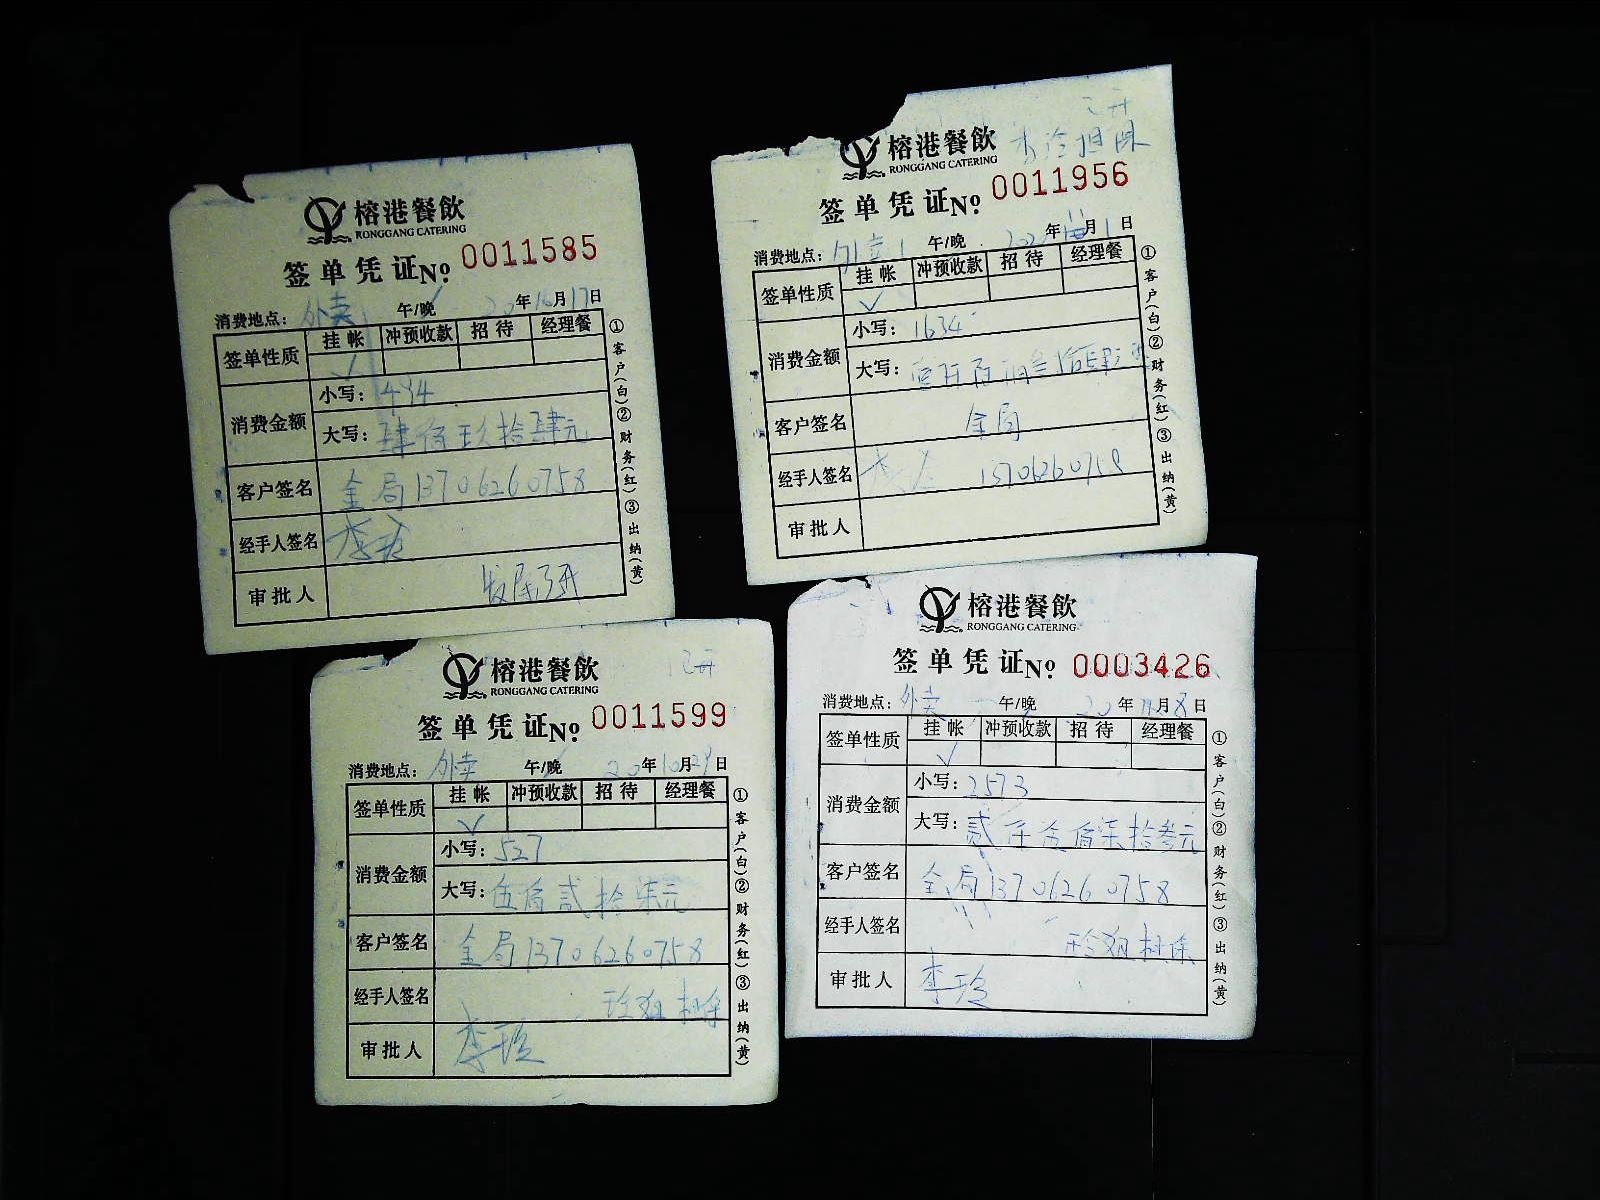 榕港餐飲
RONGGANG CATERING
签单凭证No. 0011585
消费地点: 外卖 午/晚 20年10月17日
签单性质 挂帐 冲预收款 招待 经理餐
✓
消费金额 小写: 494
大写: 肆佰玖拾肆元
客户签名 金局13706260758
经手人签名 李玲
审批人
①客户(白)②财务(红)③出纳(黄)
榕港餐飲
RONGGANG CATERING
签单凭证No. 0011956
消费地点: 外卖 午/晚 年 月1日
签单性质 挂帐 冲预收款 招待 经理餐
✓
消费金额 小写: 1634
大写:
客户签名 金局
经手人签名 13706260758
审批人
①客户(白)②财务(红)③出纳(黄)
榕港餐飲
RONGGANG CATERING
已开
签单凭证No. 0011599
消费地点: 外卖 午/晚 20年10月29日
签单性质 挂帐 冲预收款 招待 经理餐
✓
消费金额 小写: 527
大写: 伍佰贰拾柒元
客户签名 金局13706260758
经手人签名
审批人 李玲
①客户(白)②财务(红)③出纳(黄)
榕港餐飲
RONGGANG CATERING
签单凭证No. 0003426
消费地点: 外卖 午/晚 20年11月8日
签单性质 挂帐 冲预收款 招待 经理餐
✓
消费金额 小写: 2573
大写: 贰仟伍佰柒拾叁元
客户签名 金局13706260758
经手人签名
审批人 李玲
①客户(白)②财务(红)③出纳(黄)